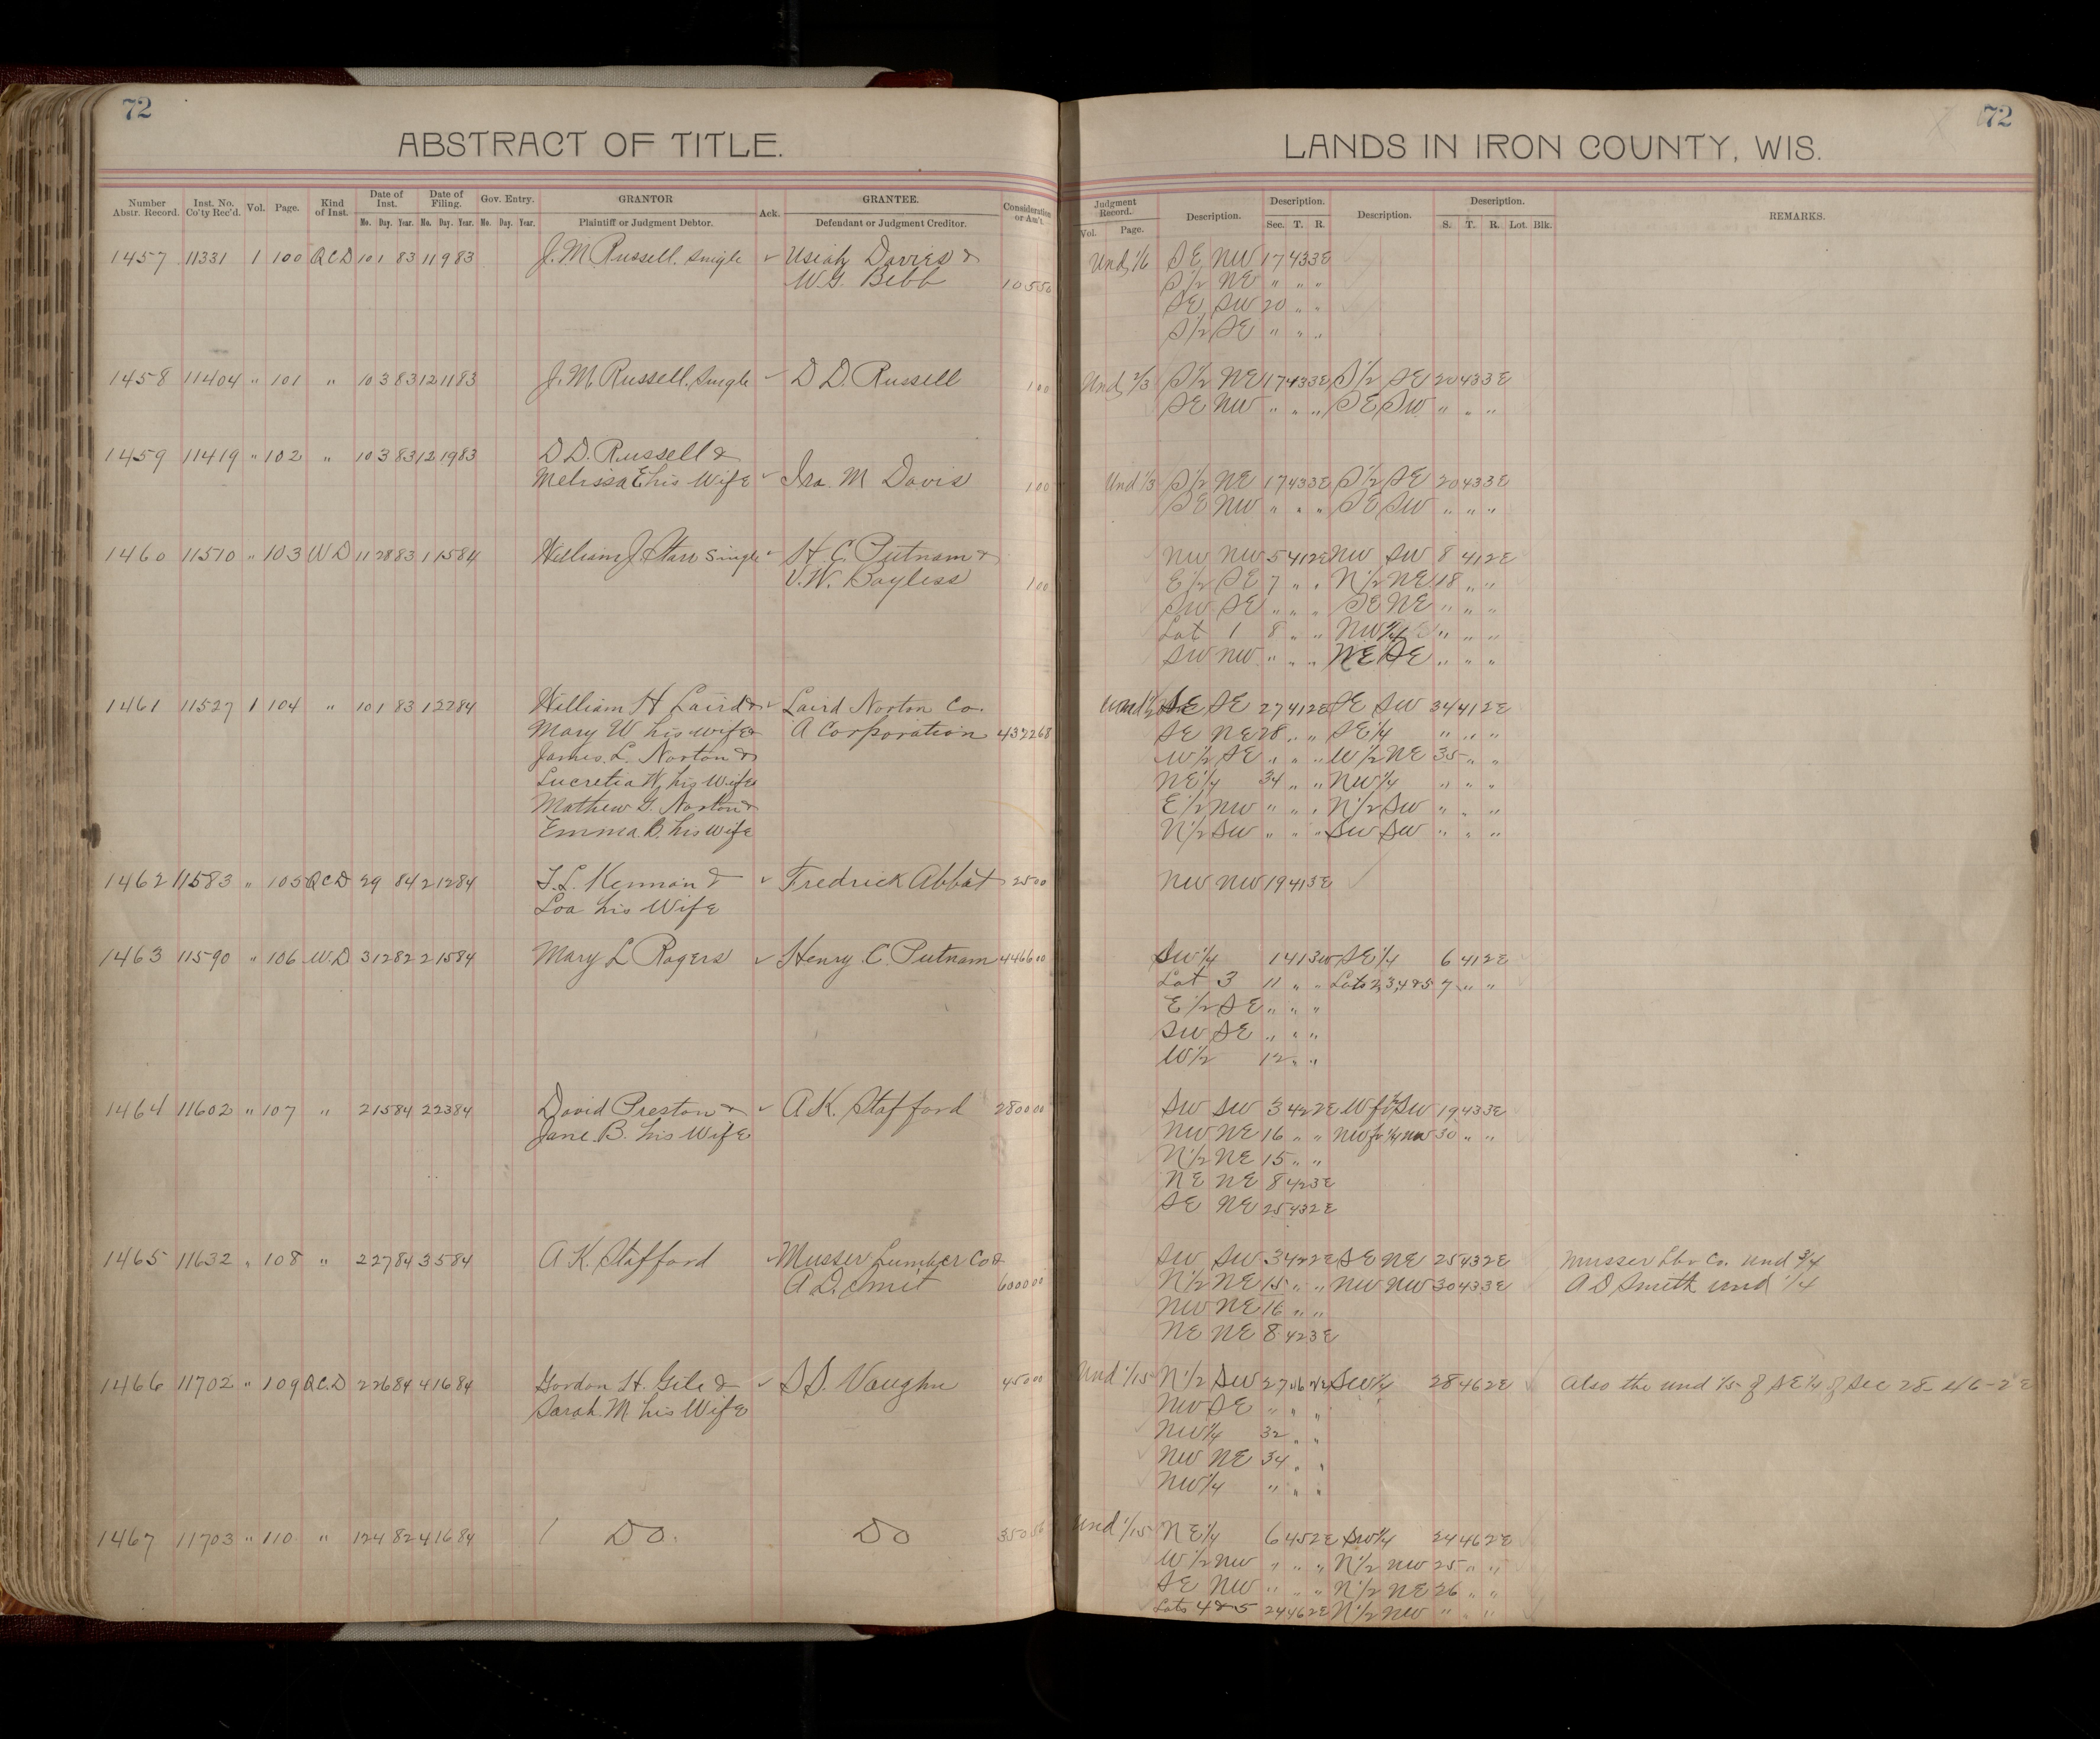 72
ABSTRACT OF TITLE.
Number Abstr. Record. Inst. No. Co'ty Rec'd. Vol. Page. Kind of Inst. Date of Inst. Mo. Day. Year. Date of Filing. Mo. Day. Year. Gov. Entry. Mo. Day. Year. GRANTOR Plaintiff or Judgment Debtor. Ack. GRANTEE. Defendant or Judgment Creditor. Consideration or Am't.
1457 11331 1 100 QCD 10 1 83 11 9 83 J. M. Russell, single Usiah Davies &
W. G. Bebb 10 550
1458 11404 " 101 " 10 3 83 12 11 83 J. M. Russell, Single D D. Russell 1 00
1459 11419 " 102 " 10 3 83 12 19 83 D D. Russell &
Melissa E his Wife Ira. M Davis 1 00
1460 11510 " 103 WD 11 28 83 1 15 84 William J Starr Single H. C. Putnam &
V. W. Bayless 1 00
1461 11527 1 104 " 10 1 83 1 22 84 William H Laird & Laird Norton Co.
Mary W his wife & A Corporation 4322 68
James. L. Norton &
Lucretia W, his Wife
Mathew G. Norton &
Emma B. his wife
1462 11583 " 105 QCD 2 9 84 2 12 84 T. L. Kennan & Fredrick Abbat 25 00
Loa his Wife
1463 11590 " 106 W.D 3 12 82 2 15 84 Mary L Rogers Henry. C. Putnam 4466 00
1464 11602 " 107 " 2 15 84 2 23 84 David Preston & A K. Stafford 2800 00
Jane. B. his Wife
1465 11632 " 108 " 2 27 84 3 5 84 A K. Stafford Musser Lumber Co &
A D. Smit 6000 00
1466 11702 " 109 QC.D 2 26 84 4 16 84 Gordon H. Gile & S S. Vaughn 450 00
Sarah. M his Wife
1467 11703 " 110 " 1 24 82 4 16 84 Do. Do 350
72
LANDS IN IRON COUNTY, WIS.
Judgment Record. Vol. Page. Description. Description. Sec. T. R. Description. Description. S. T. R. Lot. Blk. REMARKS.
Und 1/6 SE NW 17 43 3E
S 1/2 NE " " "
SE SW 20 " "
S 1/2 SE " " "
Und 2/3 S 1/2 NE 17 43 3E S 1/2 SE 20 43 3E
SE NW " " " SE SW " " "
Und 1/3 S 1/2 NE 17 43 3E S 1/2 SE 20 43 3E
SE NW " " " SE SW " " "
NW NW 5 41 2E NW SW 8 41 2E
E 1/2 SE 7 " " N 1/2 NE 18 " "
SW SE " " " SE NE " " "
Lot 1 8 " " NW 1/4 " " "
SW NW " " " NE SE " " "
Und 1/2 SE SE 27 41 2E SE SW 34 41 2E
SE NE 28 " " SE 1/4 " " "
W 1/2 SE " " " W 1/2 NE 35 " "
NE 1/4 34 " " NW 1/4 " " "
E 1/2 NW " " " N 1/2 SW " " "
N 1/2 SW " " " SW SW " " "
NW NW 19 41 3E
SW 1/4 1 41 3W SE 1/4 6 41 2E
Lot 3 11 " " Lots 2,3,4&5 7 " "
E 1/2 SE " " "
SW SE " " "
W 1/2 12 " "
SW SW 3 42 2E W fr 1/2 SW 19 43 3E
NW NE 16 " " NW fr 1/4 NW 30 " "
N 1/2 NE 15 " "
NE NE 8 42 3E
SE NE 25 43 2E
SW SW 3 42 2E SE NE 25 43 2E Musser Lbr Co. und 3/4
N 1/2 NE 15 " " NW NW 30 43 3E A D Smith und 1/4
NW NE 16 " "
NE NE 8 42 3E
Und 1/15 N 1/2 SW 27 46 2E SW 1/4 28 46 2E Also the und 1/5 of SE 1/4 of Sec 28-46-2E
NW SE " " "
NW 1/4 32 " "
NW NE 34 " "
NW 1/4 " " "
Und 1/15 NE 1/4 6 45 2E SW 1/4 24 46 2E
W 1/2 NW " " " N 1/2 NW 25 " "
SE NW " " " N 1/2 NE 26 " "
Lots 4 & 5 24 46 2E N 1/2 NW " " "